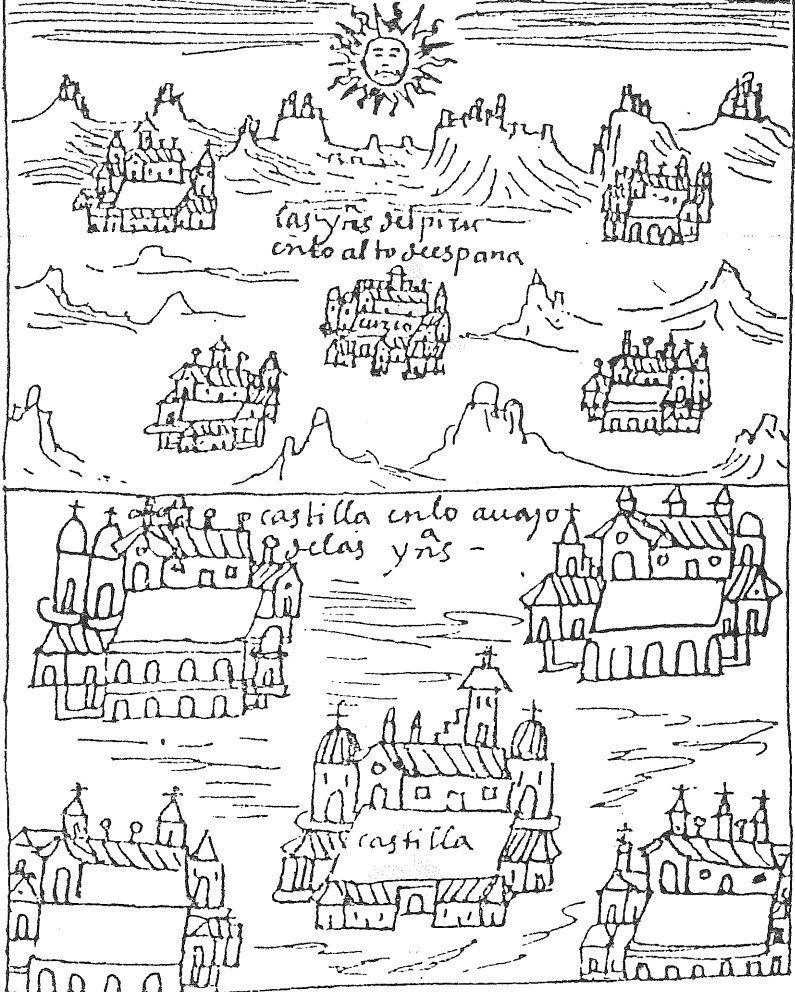 las yñs del piru
enlo alto deespana
cuzco
castilla enlo auajo
delas yñs -
castilla